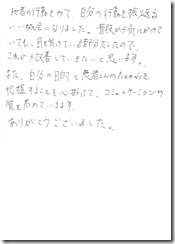 他者の行動をみて、自分の行動を振り返る
いい機会になりました。普段から気にかけて
いても、目を背けている部分だったので、
これから改善していきたいと思います。
また、自分の目的と患者さんのNeedsを
把握することを心掛けて、コミュニケーションの
質を高めていきます。
ありがとうございました。